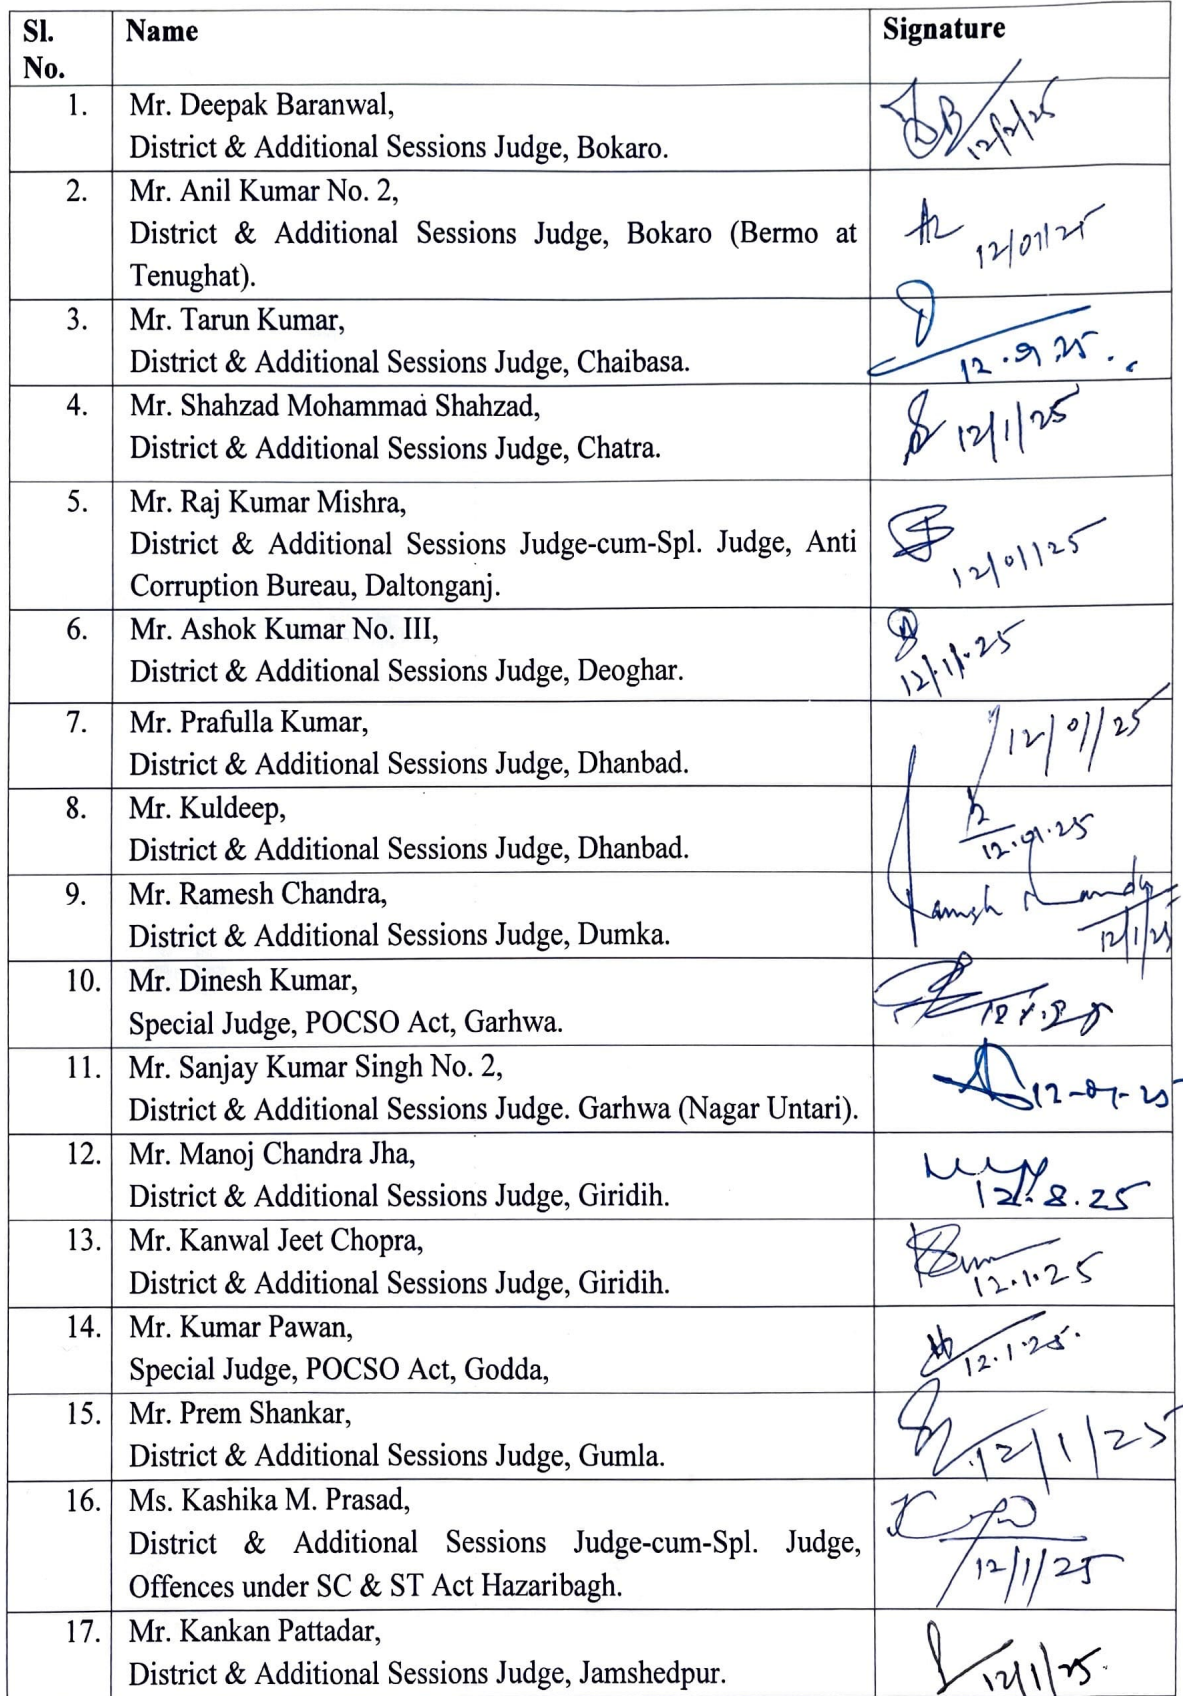 Sl. No.
Name
Signature
1.
Mr. Deepak Baranwal,
District & Additional Sessions Judge, Bokaro.
DB
2.
Mr. Anil Kumar No. 2,
District & Additional Sessions Judge, Bokaro (Bermo at
Tenughat).
12/01/25
3.
Mr. Tarun Kumar,
District & Additional Sessions Judge, Chaibasa.
4.
Mr. Shahzad Mohammad Shahzad,
District & Additional Sessions Judge, Chatra.
12/1/25
5.
Mr. Raj Kumar Mishra,
District & Additional Sessions Judge-cum-Spl. Judge, Anti
Corruption Bureau, Daltonganj.
12/01/25
6.
Mr. Ashok Kumar No. III,
District & Additional Sessions Judge, Deoghar.
7.
Mr. Prafulla Kumar,
District & Additional Sessions Judge, Dhanbad.
12/01/25
8.
Mr. Kuldeep,
District & Additional Sessions Judge, Dhanbad.
12.01.25
9.
Mr. Ramesh Chandra,
District & Additional Sessions Judge, Dumka.
Ramesh Chandra
12/1/25
10.
Mr. Dinesh Kumar,
Special Judge, POCSO Act, Garhwa.
11.
Mr. Sanjay Kumar Singh No. 2,
District & Additional Sessions Judge. Garhwa (Nagar Untari).
12-01-25
12.
Mr. Manoj Chandra Jha,
District & Additional Sessions Judge, Giridih.
13.
Mr. Kanwal Jeet Chopra,
District & Additional Sessions Judge, Giridih.
12.1.25
14.
Mr. Kumar Pawan,
Special Judge, POCSO Act, Godda,
12.1.25.
15.
Mr. Prem Shankar,
District & Additional Sessions Judge, Gumla.
12/1/25
16.
Ms. Kashika M. Prasad,
District & Additional Sessions Judge-cum-Spl. Judge,
Offences under SC & ST Act Hazaribagh.
12/1/25
17.
Mr. Kankan Pattadar,
District & Additional Sessions Judge, Jamshedpur.
12/1/25.